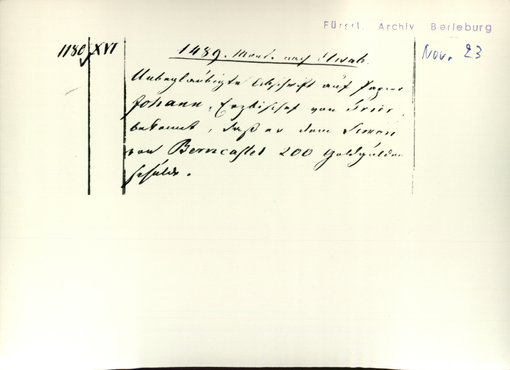 Fürstl. Archiv Berleburg
1180 XVI
1489. Mont. nach Elisab.
Nov. 23
Unbeglaubigte Abschrift auf Papier
Johann, Erzbischof von Trier,
bekennt, daß er dem Simon
von Berncastel 200 Goldgulden
schulde.